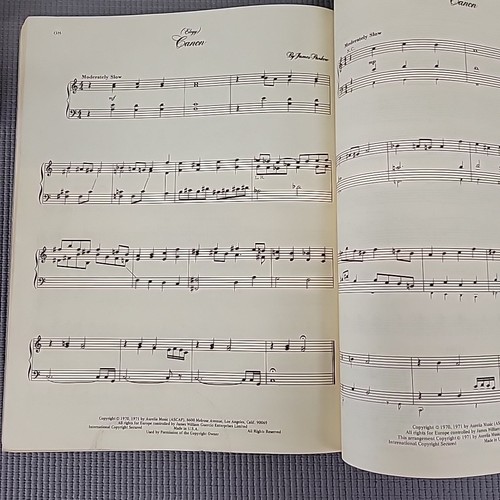 (Elegy)
Canon
Moderately Slow
mf
L.H.
Copyright © 1970, 1971 by Aurelia Music (ASCAP), 9490 Melrose Avenue, Los Angeles, Calif. 90069
All rights for Europe controlled by James William Guercio Enterprises Limited
International Copyright Secured
Made in U.S.A.
All Rights Reserved
Used by Permission of the Copyright Owner
Canon
Moderately Slow
Copyright © 1970, 1971 by Aurelia Music
All rights for Europe controlled by James William
This arrangement Copyright © 1971 by
International Copyright Secured